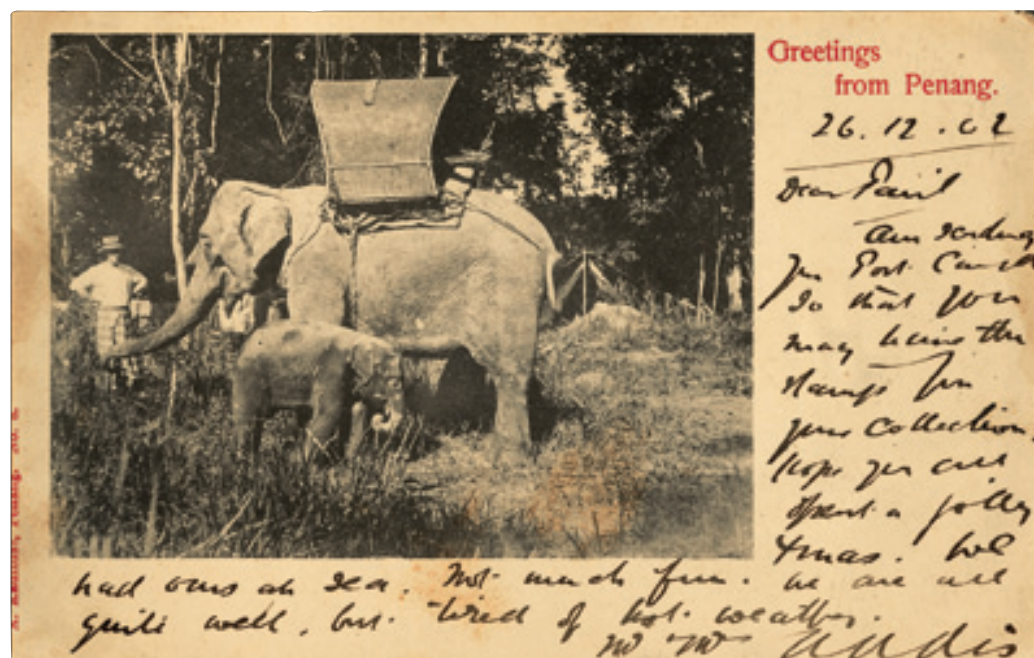 Greetings
from Penang.
26.12.02
Dear
Am sending
you Post Card
So that you
may have the
stamps for
your collection.
hope you all
spent a jolly
Xmas. We
had ours at sea. Not much fun. we are all
quite well, but tired of hot weather.